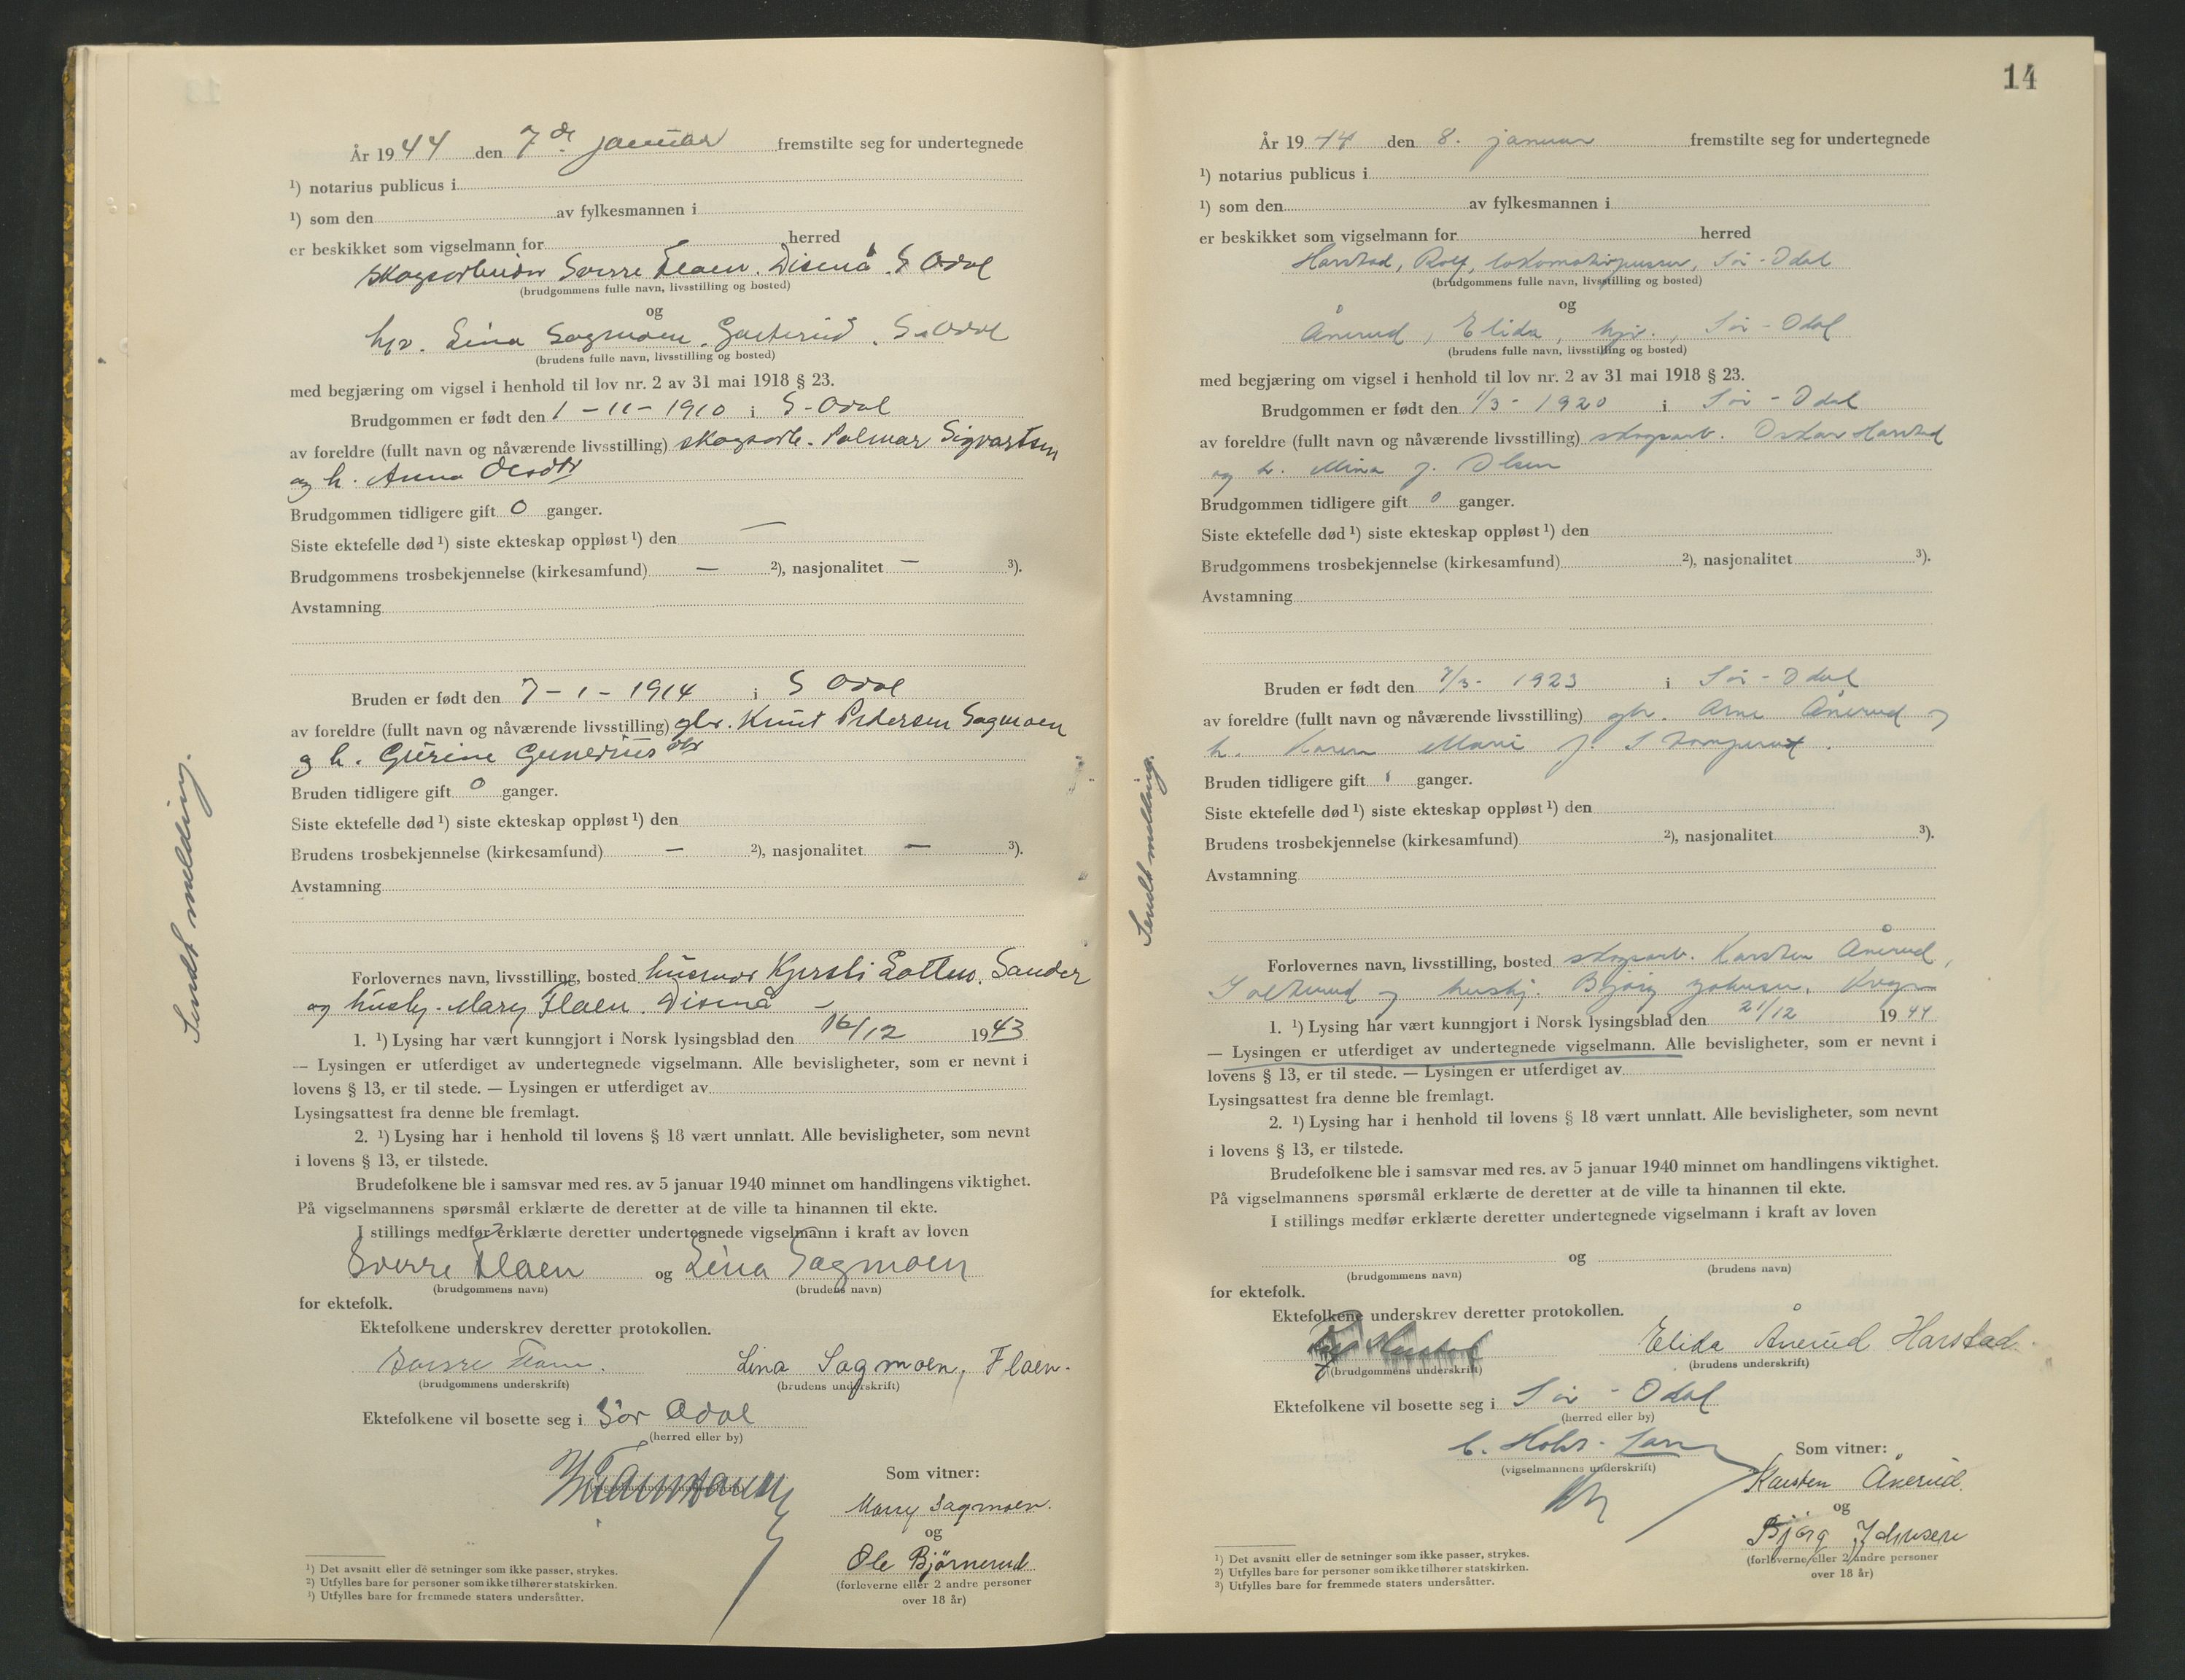 År 1944 den 7de januar fremstilte seg for undertegnede
¹) notarius publicus i
¹) som den av fylkesmannen i
er beskikket som vigselmann for herred
Skogsarbeider Sverre Flaen. Disenå. S Odal
(brudgommens fulle navn, livsstilling og bosted)
og
hjv. Lina Sagmoen. S-Odal
(brudens fulle navn, livsstilling og bosted)
med begjæring om vigsel i henhold til lov nr. 2 av 31 mai 1918 § 23.
Brudgommen er født den 1-11-1910 i S-Odal
av foreldre (fullt navn og nåværende livsstilling) skogsarb. Palmar Sigvartsen
og h. Anna Olsdtr
Brudgommen tidligere gift 0 ganger.
Siste ektefelle død ¹) siste ekteskap oppløst ¹) den —
Brudgommens trosbekjennelse (kirkesamfund) — ²), nasjonalitet — ³).
Avstamning
Bruden er født den 7-1-1914 i S Odal
av foreldre (fullt navn og nåværende livsstilling) gbr. Knut Pedersen Sagmoen
og h. Gurine Gunerius dtr
Bruden tidligere gift 0 ganger.
Siste ektefelle død ¹) siste ekteskap oppløst ¹) den
Brudens trosbekjennelse (kirkesamfund) — ²), nasjonalitet — ³).
Avstamning
Sendt melding.
Forlovernes navn, livsstilling, bosted husmor Kjersti Sander
og hushj. Mary Flaen. Disenå —
1. ¹) Lysing har vært kunngjort i Norsk lysingsblad den 16/12 1943
— Lysingen er utferdiget av undertegnede vigselmann. Alle bevisligheter, som er nevnt i
lovens § 13, er til stede. — Lysingen er utferdiget av
Lysingsattest fra denne ble fremlagt.
2. ¹) Lysing har i henhold til lovens § 18 vært unnlatt. Alle bevisligheter, som nevnt
i lovens § 13, er tilstede.
Brudefolkene ble i samsvar med res. av 5 januar 1940 minnet om handlingens viktighet.
På vigselmannens spørsmål erklærte de deretter at de ville ta hinannen til ekte.
I stillings medfør erklærte deretter undertegnede vigselmann i kraft av loven
Sverre Flaen og Lina Sagmoen
(brudgommens navn) (brudens navn)
for ektefolk.
Ektefolkene underskrev deretter protokollen.
Sverre Flaen. Lina Sagmoen, Flaen.
(brudgommens underskrift) (brudens underskrift)
Ektefolkene vil bosette seg i Sør Odal
(herred eller by)
(vigselmannens underskrift)
Som vitner:
Marry Sagmoen.
og
Ole Bjørnerud
(forloverne eller 2 andre personer
over 18 år)
¹) Det avsnitt eller de setninger som ikke passer, strykes.
²) Utfylles bare for personer som ikke tilhører statskirken.
³) Utfylles bare for fremmede staters undersåtter.
14
År 1944 den 8. januar fremstilte seg for undertegnede
¹) notarius publicus i
¹) som den av fylkesmannen i
er beskikket som vigselmann for herred
Harstad, Rolf, lokomotivpusser, Sør-Odal
(brudgommens fulle navn, livsstilling og bosted)
og
Ånerud, Elida, hjv., Sør-Odal
(brudens fulle navn, livsstilling og bosted)
med begjæring om vigsel i henhold til lov nr. 2 av 31 mai 1918 § 23.
Brudgommen er født den 1/3-1920 i Sør-Odal
av foreldre (fullt navn og nåværende livsstilling) skogsarb. Oskar Harstad
og h. Mina f. Olsen
Brudgommen tidligere gift 0 ganger.
Siste ektefelle død ¹) siste ekteskap oppløst ¹) den
Brudgommens trosbekjennelse (kirkesamfund) ²), nasjonalitet ³).
Avstamning
Bruden er født den 7/3-1923 i Sør-Odal
av foreldre (fullt navn og nåværende livsstilling) gbr. Arne Ånerud og
h. Karen Marie f.
Bruden tidligere gift ganger.
Siste ektefelle død ¹) siste ekteskap oppløst ¹) den
Brudens trosbekjennelse (kirkesamfund) ²), nasjonalitet ³).
Avstamning
Sendt melding.
Forlovernes navn, livsstilling, bosted skogsarb. Karsten Ånerud,
og hushj. Bjørg Johnsen,
1. ¹) Lysing har vært kunngjort i Norsk lysingsblad den 21/12 1944
— Lysingen er utferdiget av undertegnede vigselmann. Alle bevisligheter, som er nevnt i
lovens § 13, er til stede. — Lysingen er utferdiget av
Lysingsattest fra denne ble fremlagt.
2. ¹) Lysing har i henhold til lovens § 18 vært unnlatt. Alle bevisligheter, som nevnt
i lovens § 13, er tilstede.
Brudefolkene ble i samsvar med res. av 5 januar 1940 minnet om handlingens viktighet.
På vigselmannens spørsmål erklærte de deretter at de ville ta hinannen til ekte.
I stillings medfør erklærte deretter undertegnede vigselmann i kraft av loven
og
(brudgommens navn) (brudens navn)
for ektefolk.
Ektefolkene underskrev deretter protokollen.
Harstad Elida Ånerud Harstad.
(brudgommens underskrift) (brudens underskrift)
Ektefolkene vil bosette seg i Sør-Odal
(herred eller by)
(vigselmannens underskrift)
Som vitner:
Karsten Ånerud.
og
Bjørg Johnsen
(forloverne eller 2 andre personer
over 18 år)
¹) Det avsnitt eller de setninger som ikke passer, strykes.
²) Utfylles bare for personer som ikke tilhører statskirken.
³) Utfylles bare for fremmede staters undersåtter.